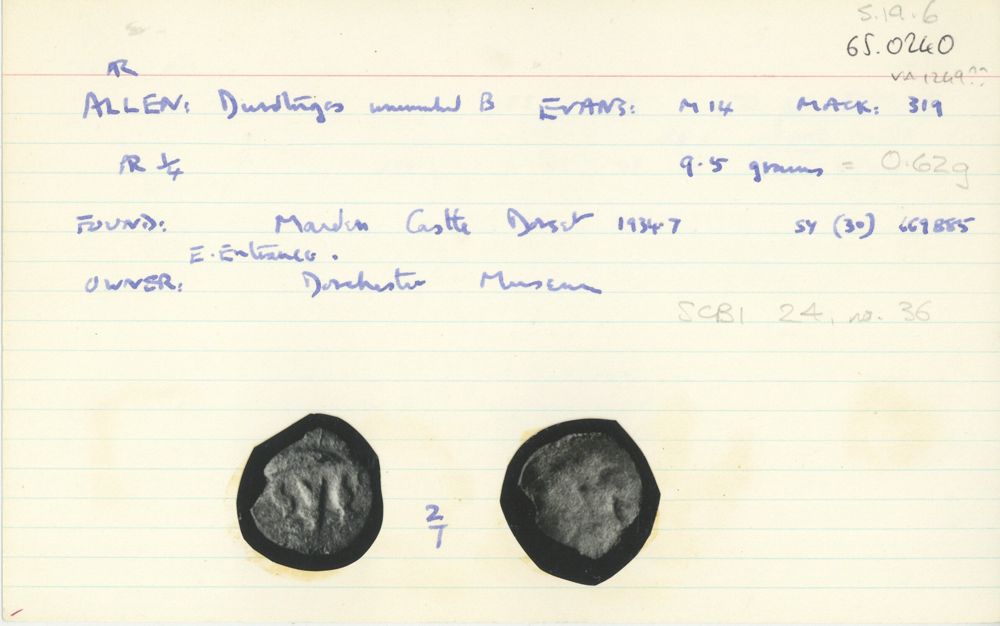 S.19.6
65.0240
VA 1249??
AR
ALLEN: Durotriges uninscribed B EVANS: M 14 MACK: 319
AR 1/4 9.5 grains = 0.62g
FOUND: Maiden Castle Dorset 1934-7 SY (30) 669885
E. Entrance.
OWNER: Dorchester Museum
SCBI 24, no. 36
2/1